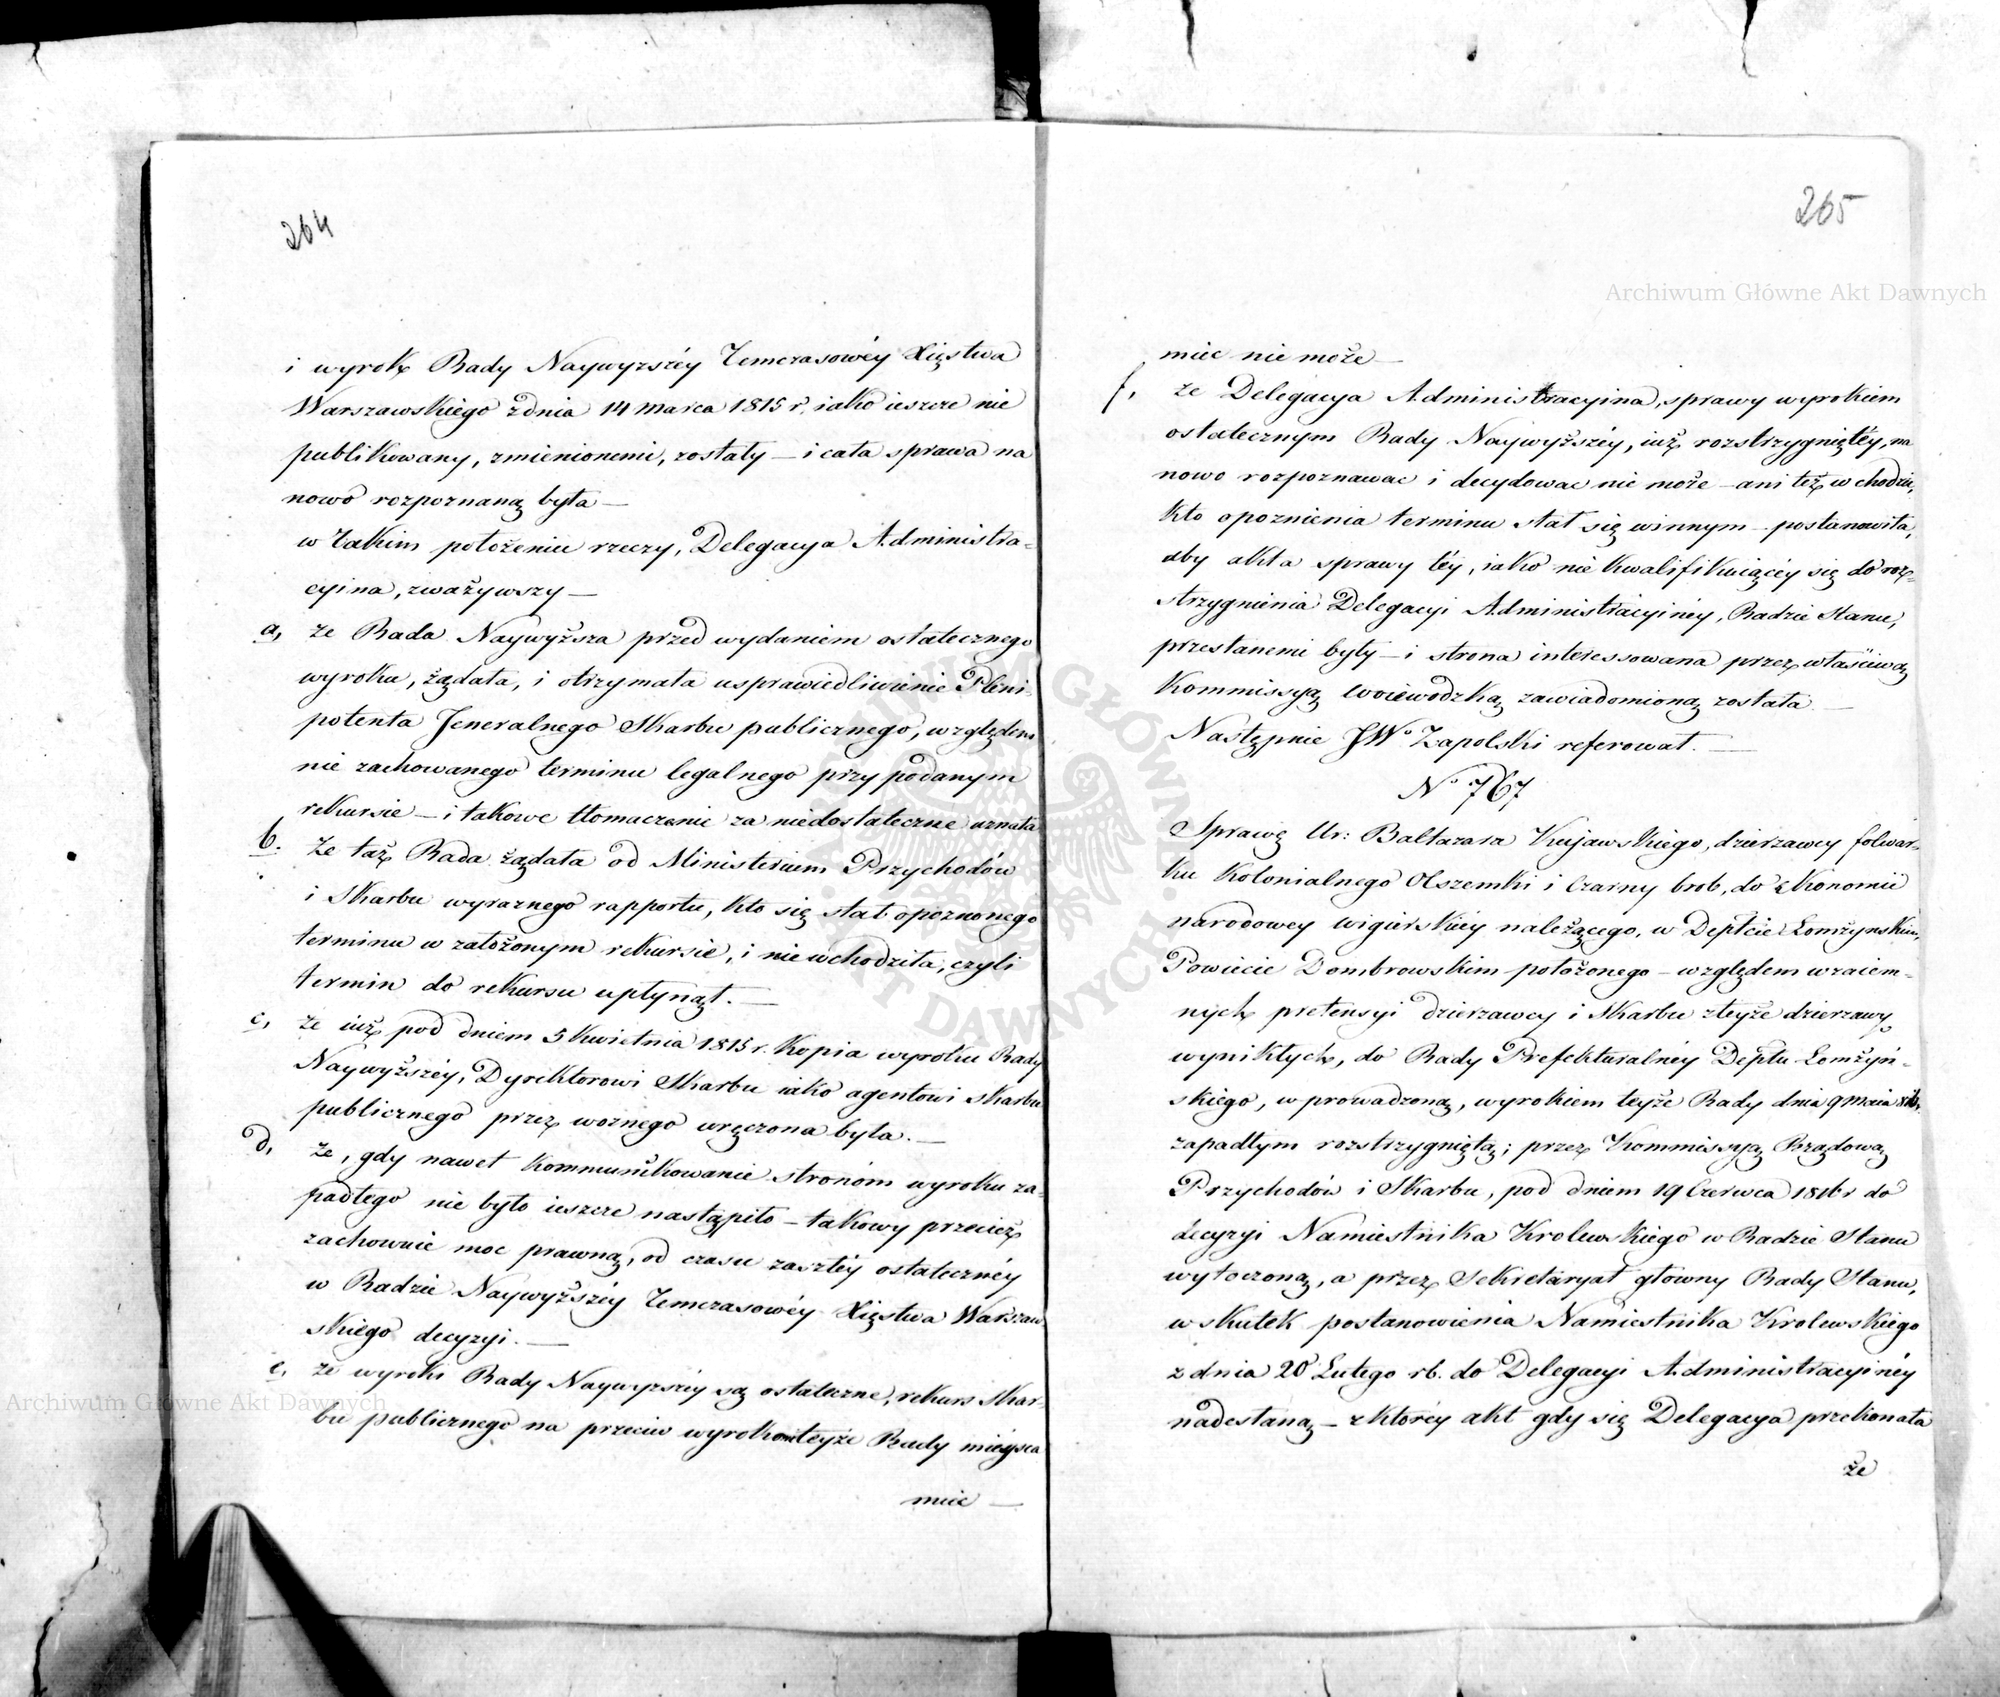 264
i wyrok Rady Naywyższéy Temczasowéy Xięstwa
Warszawskiego z dnia 14 Marca 1815 r. iako ieszcze nie
publikowany, zmienionemi, zostały – i cała sprawa na
nowo rozpoznaną była –
w takim położeniu rzeczy, Delegacya Administra-
cyina, zważywszy –
a, że Rada Naywyższa przed wydaniem ostatecznego
wyroku, żądała, i otrzymała usprawiedliwienie Pleni-
potenta Jeneralnego Skarbu publicznego, względem
nie zachowanego terminu legalnego przy podanym
rekursie – i takowe tłomaczenie za niedostateczne uznała
b. Że taż Rada żądała od Ministerium Przychodów
i Skarbu wyraznego rapportu, kto się stał opoznonego
terminu w założonym rekursie, i nie wchodziła, czyli
termin do rekursu upłynął. –
c, że iuż pod dniem 5 Kwietnia 1815 r. Kopia wyroku Rady
Naywyższéy, Dyrektorowi Skarbu iako agentowi Skarbu
publicznego przez woznego wręczona była. –
d, że, gdy nawet kommunikowanie stronóm wyroku za-
padłego nie było ieszcze nastąpiło – takowy przecież
zachowuie moc prawną, od czasu zaszłéy ostatecznéy
w Radzie Naywyższéy Temczasowéy Xięstwa Warszaw-
skiego decyzyi. –
e, że wyroki Rady Naywyzszéy są ostateczne, rekurs Skar-
bu publicznego na przeciw wyrokom teyże Rady mieysca
mieć –
265
Archiwum Główne Akt Dawnych
mieć nie może –
f, że Delegacya Administracyina, sprawy wyrokiem
ostatecznym Rady Naywyższéy, iuż rozstrzygniętéy, na
nowo rozpoznawać i decydować nie może – ani też wchodzić,
kto opoznienia terminu stał się winnym – postanowiła,
aby akta sprawy téy, iako nie kwalifikuiącéy się do roz-
strzygnienia Delegacyi Administracyinéy, Radzie Stanu,
przesłanemi były – i strona interessowana przez właściwą
Kommissyą Woiewodzką zawiadomioną została. –
Następnie JW° Zapolski referował. –
N° 767
Sprawę Ur: Baltazara Kujawskiego, dzierzawcy folwar-
ku Kolonialnego Olszemki i Czarny brob, do ekonomii
narodowey wigierskiéy należącego, w Depcie Łomżynskim,
Powiecie Dombrowskim położonego – względem wzaiem-
nych pretensyi dzierzawcy i Skarbu z teyże dzierzawy
wynikłych, do Rady Prefekturalnéy Deptu Łomżyń-
skiego, wprowadzoną, wyrokiem teyże Rady dnia 9 Maia 1816,
zapadłym rozstrzygniętą; przez Kommissyą Rządową
Przychodów i Skarbu, pod dniem 19 Czerwca 1816 r do
decyzyi Namiestnika Krolewskiego w Radzie Stanu
wytoczoną, a przez Sekretaryat główny Rady Stanu,
w skutek postanowienia Namiestnika Krolewskiego
z dnia 20 Lutego r b. do Delegacyi Administracyinéy
nadesłaną – z ktoréy akt gdy się Delegacya przekonała
że
Archiwum Główne Akt Dawnych
ARCHIWUM GŁÓWNE AKT DAWNYCH